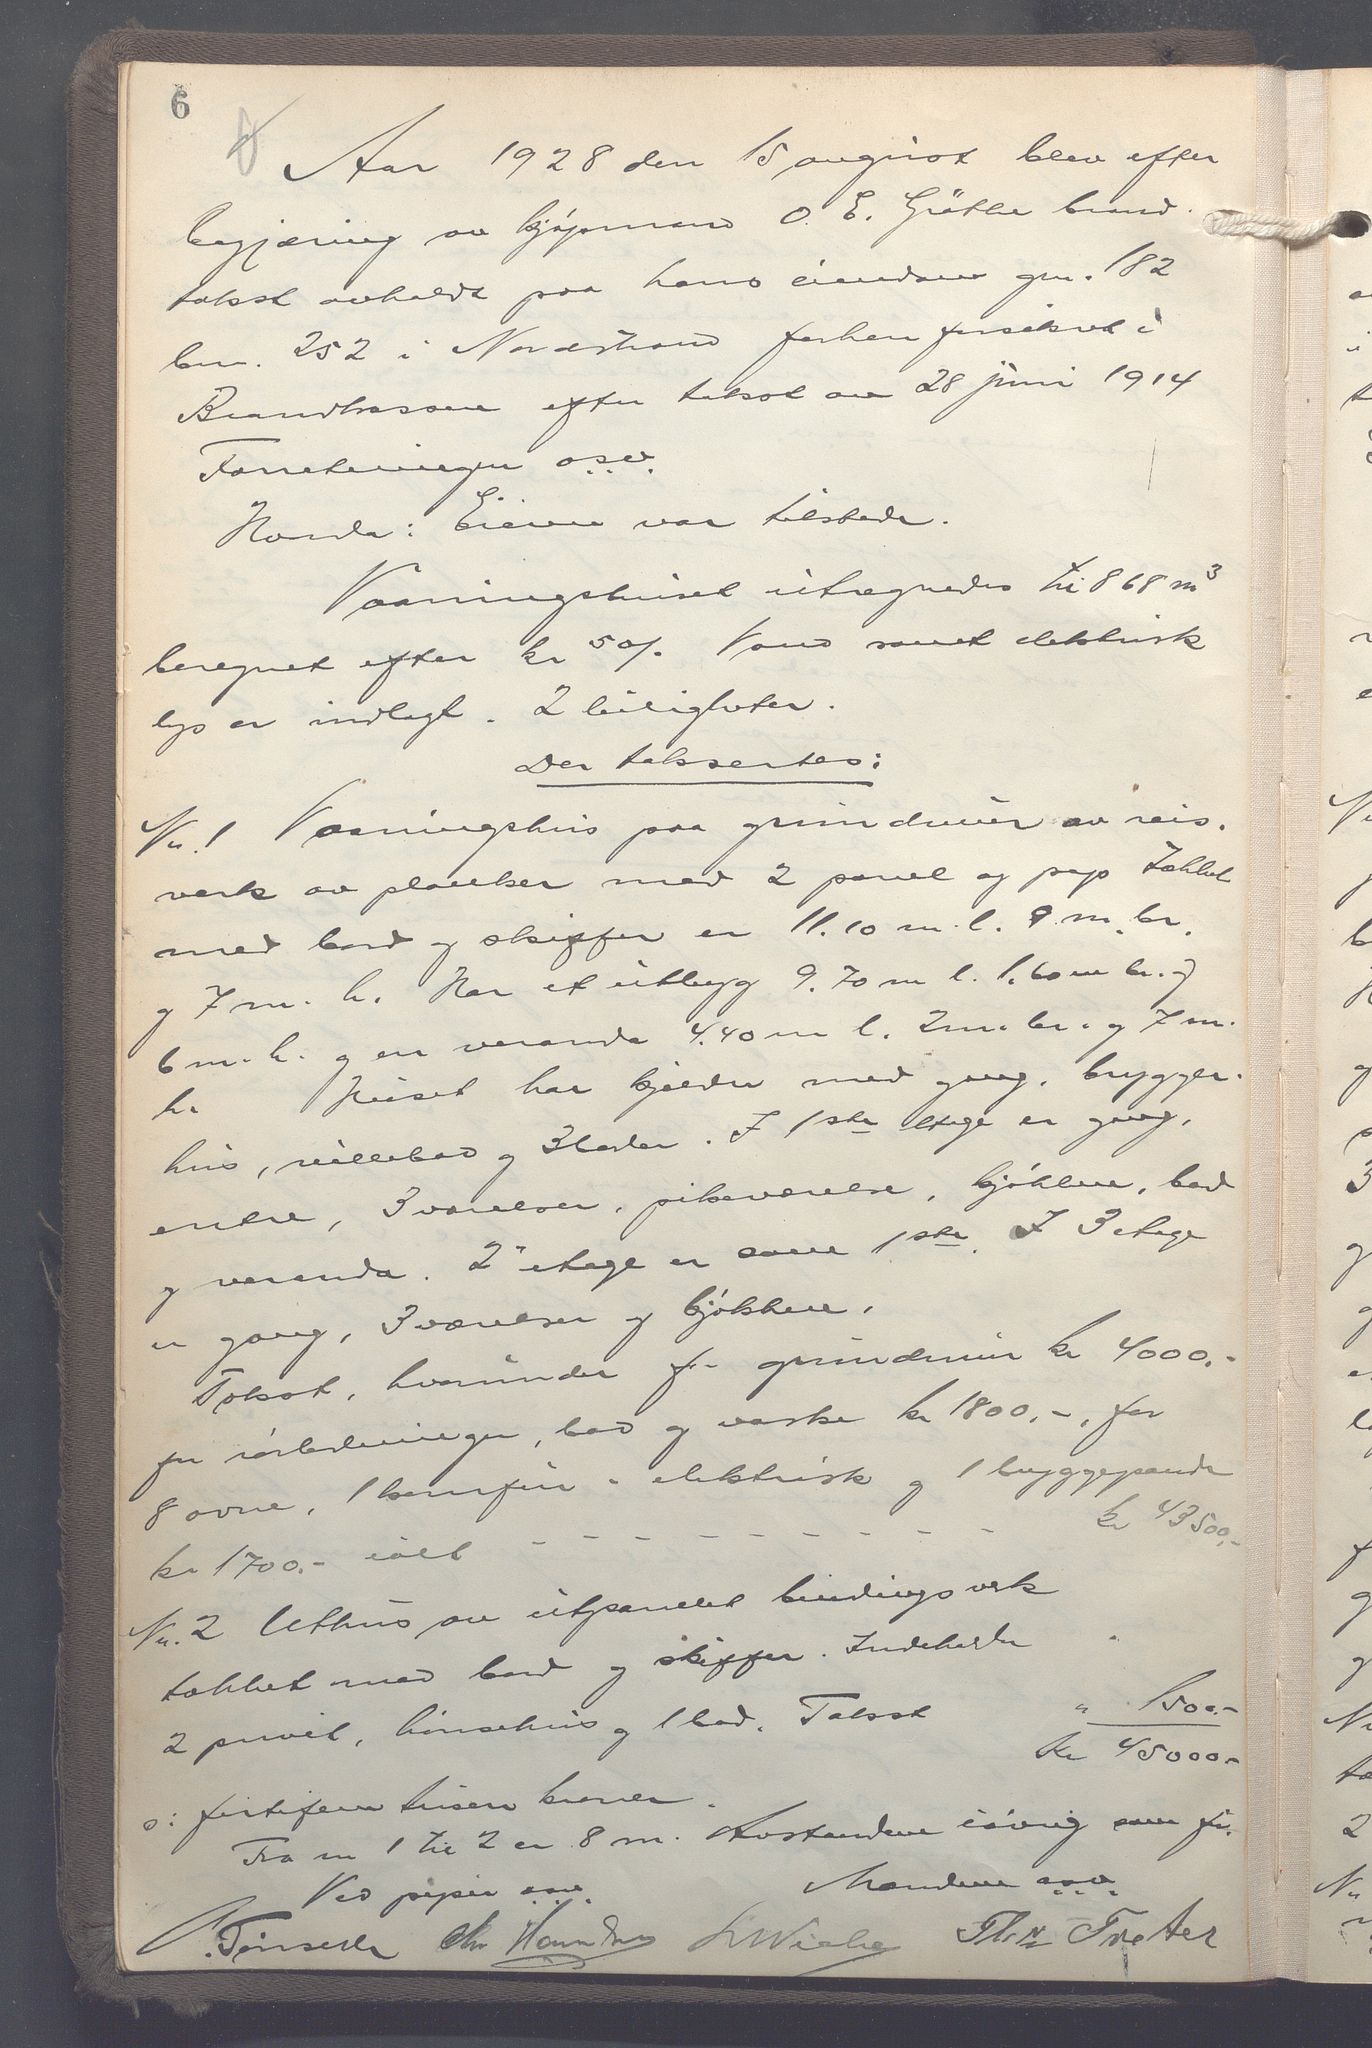 6
Aar 1928 den 15 august blev efter
begjæring av kjøpmand O. E. Gröthe brand-
takst avholdt paa hans eiendom gnr. 182
bnr. 252 i Nordstrand forhen forsikret i
Brandkassen efter takst av 28 juni 1914
Forretningen o.s.v.
Herda: Eieren var tilstede.
Vaaningshuset utregnedes til 868 m³
beregnet efter kr 50/. Vand samt elektrisk
lys er indlagt. 2 leiligheter.
Der taksertes:
Nr. 1 Vaaningshus paa grundmur av reis-
verk av planker med 2 panel og pap Tækket
med bord og skiffer er 11.10 m. l. 9 m. br.
og 7 m. h. Har et utbyg 9.70 m l. 1.60 m br. og
6 m. h. og en veranda 4.40 m l. 2 m. br. og 7 m.
h. Huset har kjelder med gang, brygger-
hus, rullebod og 3 boder. I 1ste etage er gang,
entre, 3 værelser, pikeværelse, kjøkken, bad
og veranda. 2" etage er som 1ste. I 3 etage
er gang, 3 værelser og kjøkken.
Takst, hvorunder for grundmur kr 4000.-
for rørledninger, bad og vaske kr 1800.-, for
8 ovne, 1 komfur - elektrisk og 1 bryggepande
kr 1700.- ialt - - - - - - - - - - kr 43500.-
Nr. 2 Uthus av utpanelet bindingsverk
tækket med bord og skiffer. Indeholder
2 privet, hønsehus og 1 bod. Takst " 1500.-
kr 45000.-
ɔ: førtifem tusen kroner.
Fra nr 1 til 2 er 8 m. Avstandene iøvrig som før.
Ved piper o.s.v. Mændene o.s.v.
Th. Tveter